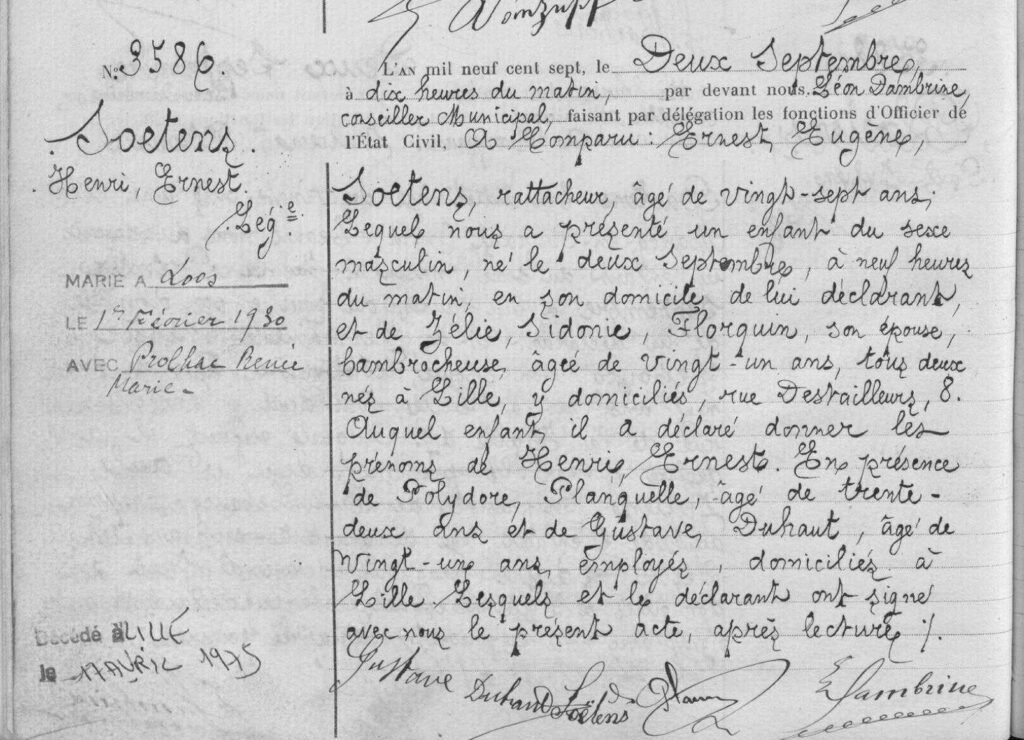 N° 3586.
Soetens
Henri, Ernest.
Lég.e
MARIE A Loos
LE 1er Février 1930
AVEC Prolhac Renee
Marie -
Décédé à LILLE
le 17 AVRIL 1975
L'AN mil neuf cent sept, le Deux Septembre,
à dix heures du matin, par devant nous. Léon Dambrine,
conseiller Municipal, faisant par délégation les fonctions d'Officier de
l'État Civil, A Comparu : Ernest, Eugène,
Soetens, rattacheur, âgé de vingt-sept ans;
Lequel nous a présenté un enfant du sexe
masculin, né le deux Septembre, à neuf heures
du matin, en son domicile de lui déclarant,
et de Zélie, Sidonie, Florquin, son épouse,
bambrocheuse, âgée de vingt-un ans, tous deux
nés à Lille, y domiciliés, rue Destailleurs, 8.
Auquel enfant, il a déclaré donner les
prénoms de Henri, Ernest. En présence
de Polydore, Planquelle, âgé de trente-
deux ans et de Gustave, Duhaut, âgé de
Vingt-un ans, employés, domiciliés à
Lille Lesquels et le déclarant ont signé
avec nous le présent acte, après lecture ./.
Gustave Duhaut Soëtens L Dambrine